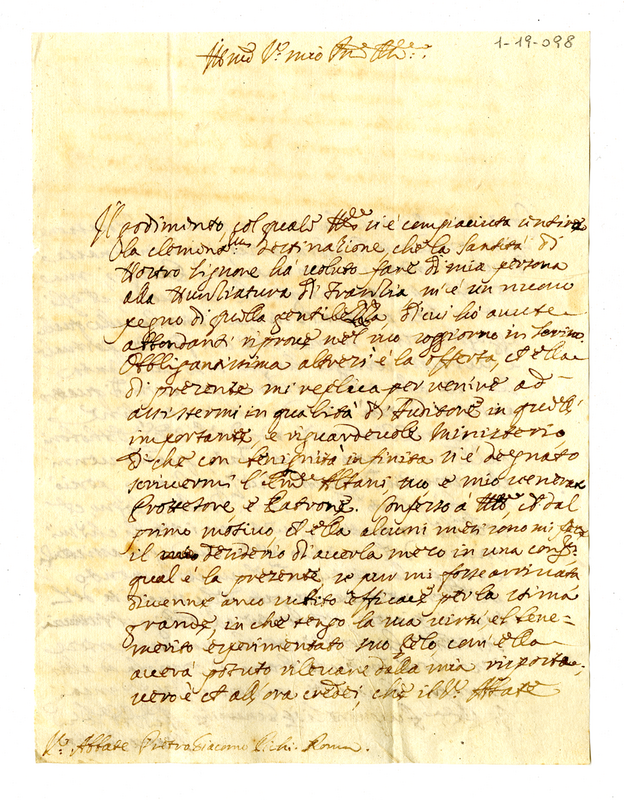 1-19-098
Sig.r mio
Il godimento, col quale si è compiaciuta sentire
la clemen.ma destinazione che la Santità di
Nostro Signore ha voluto fare di mia persona
alla Nunziatura di Francia m'è un nuovo
pegno di quella gentilezza di cui hò avute
abbondanti riprove nel mio soggiorno in Torino.
Obbligantissima altresì è la offerta, ch'ella
di presente mi replica per venire ad
assistermi in qualità di Auditore in quell'
importante, e riguardevole Ministerio
di che con benignità infinita si è degnato
scrivermi l' Albani suo e mio venerat
Protettore e Padrone. Confesso à ch'è dal
primo motivo, ch'ella alcuni mesi sono mi fece
il desiderio di averla meco in una
qual è la presente, se pur mi fosse arrivata
divenne anco subito efficace per la stima
grande, in che tengo la sua virtù el bene-
merito esperimentato suo zelo com'ella
averà potuto rilevare dalla mia risposta;
vero è ch'all'ora credei, che il S.r Abbate
S.r Abbate Pietro Giacomo Roma.